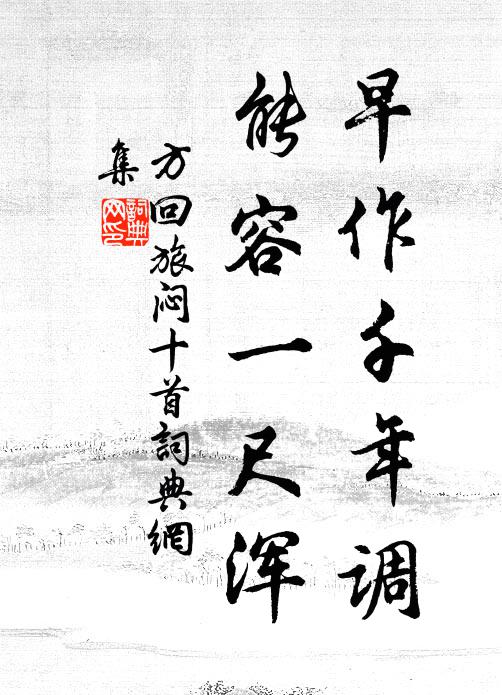 早作千年调
能容一尺浑
方回旅闷十首詞典網
集
詞典
网印